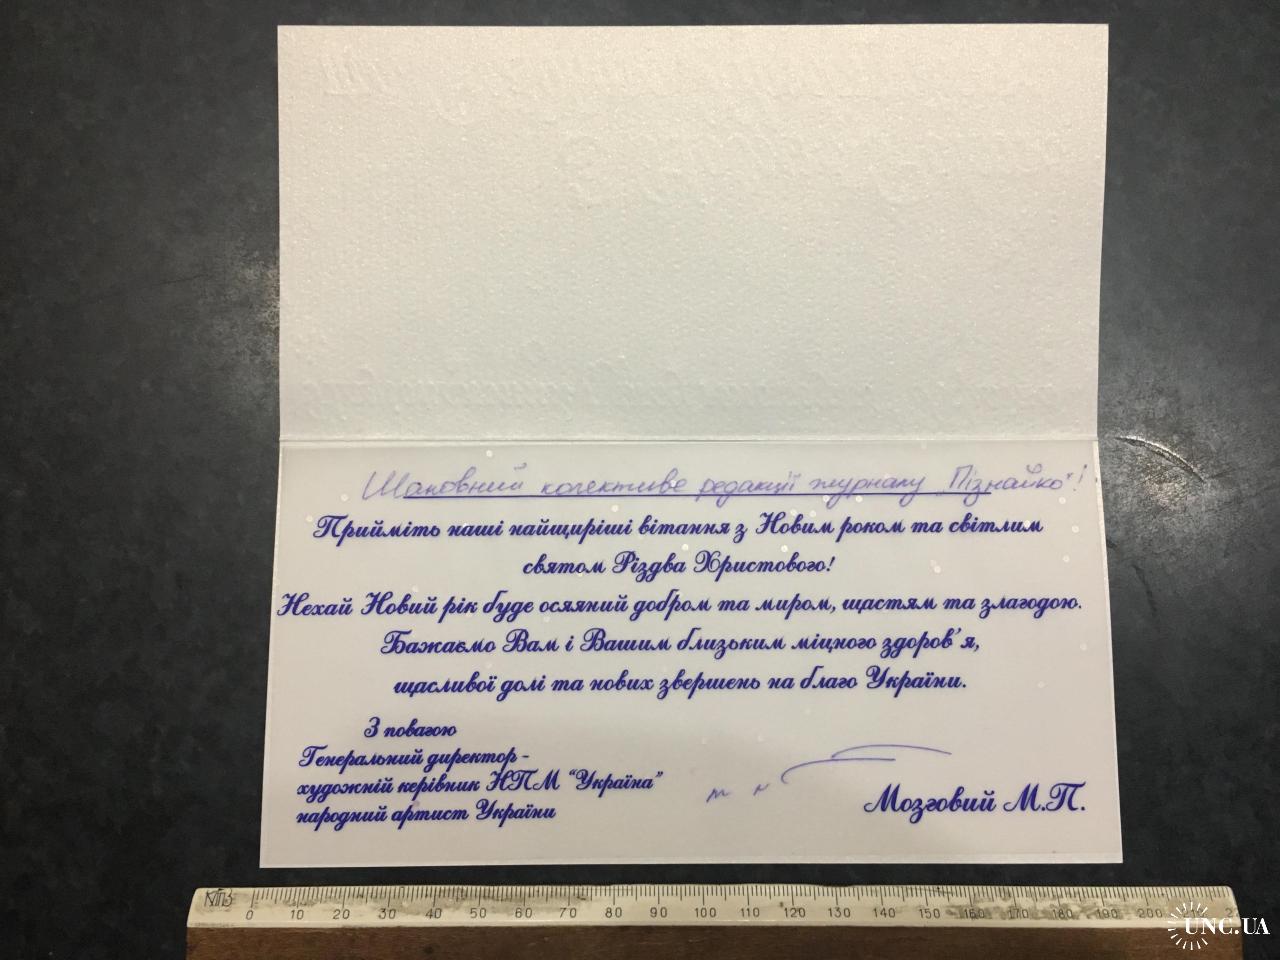 Шановний колективе редакції журналу „Пізнайко"!
Прийміть наші найщиріші вітання з Новим роком та світлим
святом Різдва Христового!
Нехай Новий рік буде осяяний добром та миром, щастям та злагодою.
Бажаємо Вам і Вашим близьким міцного здоров'я,
щасливої долі та нових звершень на благо України.
З повагою
Генеральний директор-
художній керівник НПМ "Україна"
народний артист України
Мозговий М.П.
0 10 20 30 40 50 60 70 80 90 100 110 120 130 140 150 160 170 180 190 200
UNC.UA